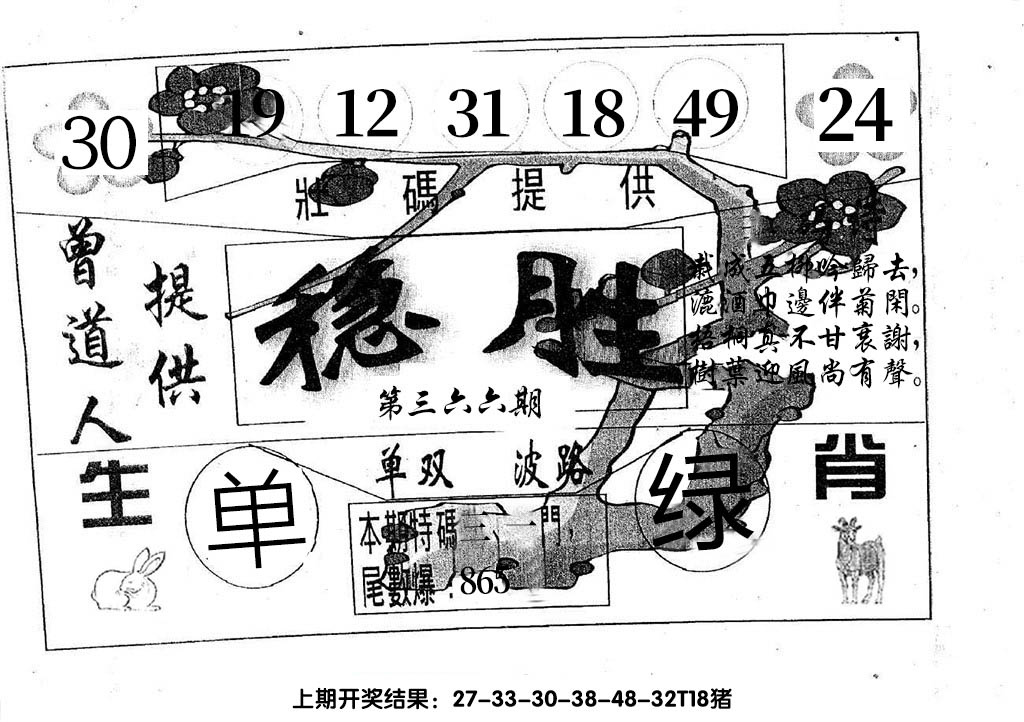 30 19 12 31 18 49 24
壯碼提供
特
曾道人
提供
稳胜
第三六六期
栽成五柳吟歸去，
漉酒巾邊伴菊閑。
梧桐真不甘衰謝，
樹葉迎風尚有聲。
生肖
单双 波路
单
绿
本期特碼三、一門，
尾數爆：865
上期开奖结果：27-33-30-38-48-32T18猪